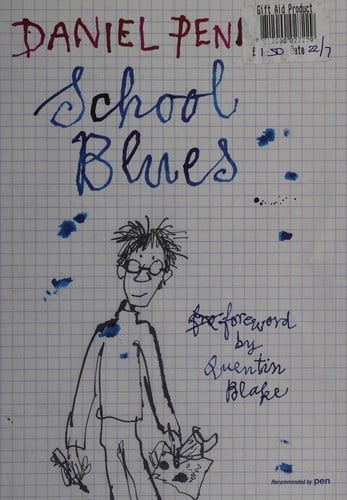 DANIEL PEN
Gift Aid Product
£ 1.50 Date 22/7
School
Blues
foreword
by
Quentin
Blake
Recommended by pen